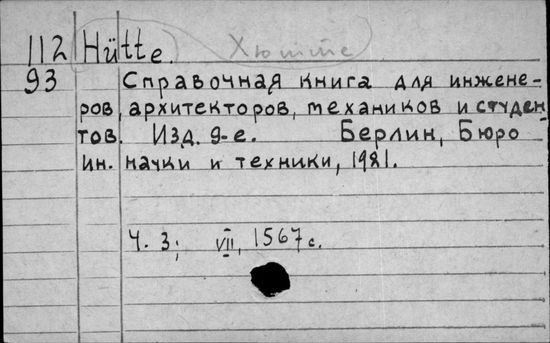 112 Hütte. Хютте
93 Справочная книга для инжене-
ров, архитекторов, механиков и студен
тов. Изд. 9-е. Берлин, Бюро
ин. науки и техники, 1921.
Ч. 3; VII, 1567 с.